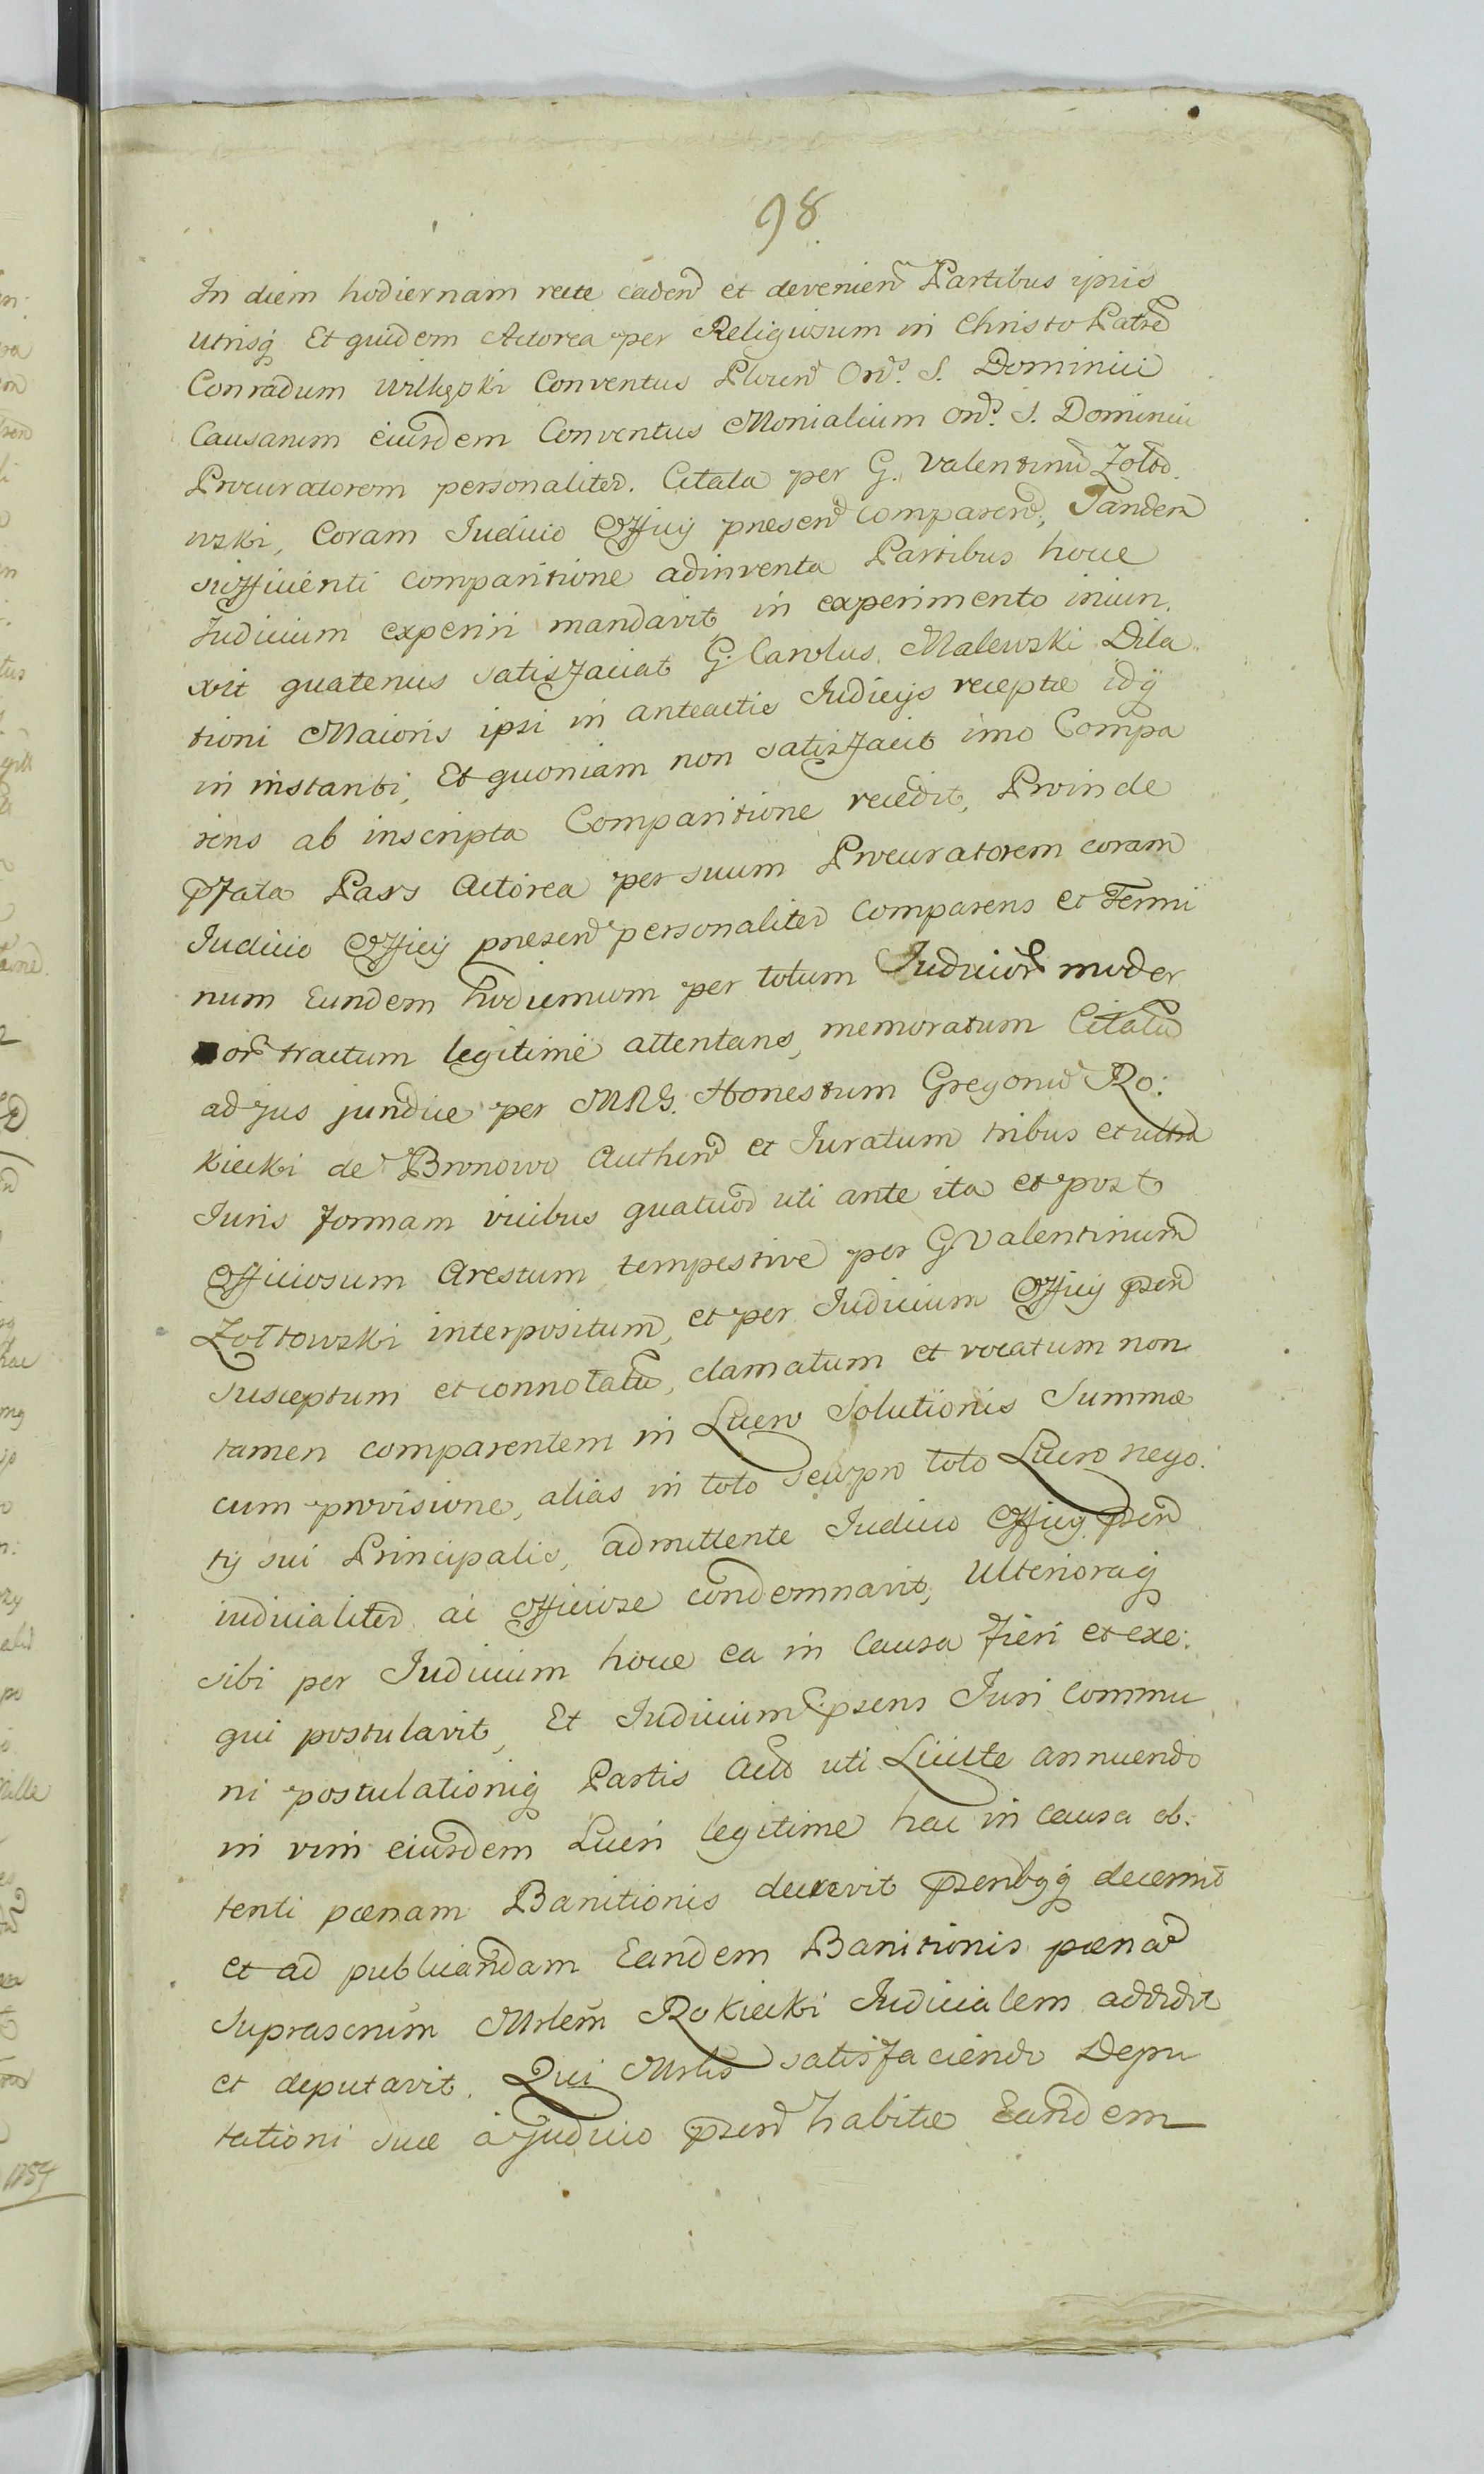 98
In diem hodiernam recte caden et devenien Partibus ipsis
utrisq Et quidem Actorea per Religiosum in Christo Patre
Conradum Wilkęski Conventus Plocen Ord. S. Dominici
Causarum eiusdem Conventus Monialium Ord. S. Dominici
Procuratorem personaliter. Citata per G. Valentinu Zołto
wski, Coram Iudicio Officij presen comparen, Tandem
sufficienti comparitione adinventa Partibus hocce
Iudicium experiri mandavit, in experimento iniun
xit quatenus satisfaciat G. Carolus Malewski Dila
tioni Maioris ipsi in anteactis Iudicijs receptæ idq
in instanti, Et quoniam non satisfacit imo Compa
rens ab inscripta Comparitione recedit, Proinde
pfata Pars Actorea per suum Procuratorem coram
Iudicio Officij presen personaliter Comparens et Termi
num Eundem hodiernum per totum Iudicior moder
nor tractum legitime attentans, memoratum Citatu
ad jus juridice per MRG. Honestum Gregoriu Ro:
kicki de Bronowo Authen et Iuratum tribus et ultra
Iuris formam vicibus quatuor uti ante ita et post
Officiosum Arestum tempestive per G. Valentinum
Zołtowski interpositum, et per Iudicium Officij psen
susceptum et connotatu, clamatum et vocatum non
tamen comparentem in Lucro Solutionis Summæ
cum provisione, alias in toto seu pro toto Lucro nego:
tij sui Principalis, admittente Iudicio Officij psen
iudicialiter ac officiose condemnavit, Ulterioraq
sibi per Iudicium hocce ea in Causa fieri et exe:
qui postulavit, Et Iudicium psens Iuri Commu
ni postulationiq Partis Act uti Licitæ annuendo
in vim eiusdem Lucri legitime hac in Causa ob:
tenti pœnam Banitionis decrevit psentbqq decernit
et ad publicandam Eandem Banitionis pœna
suprascrum Mrlem Rokicki Iudicialem addidit
et deputavit. Qui Mrlis satisfaciendo Depu
tationi suæ à Judicio psen habitæ Eandem